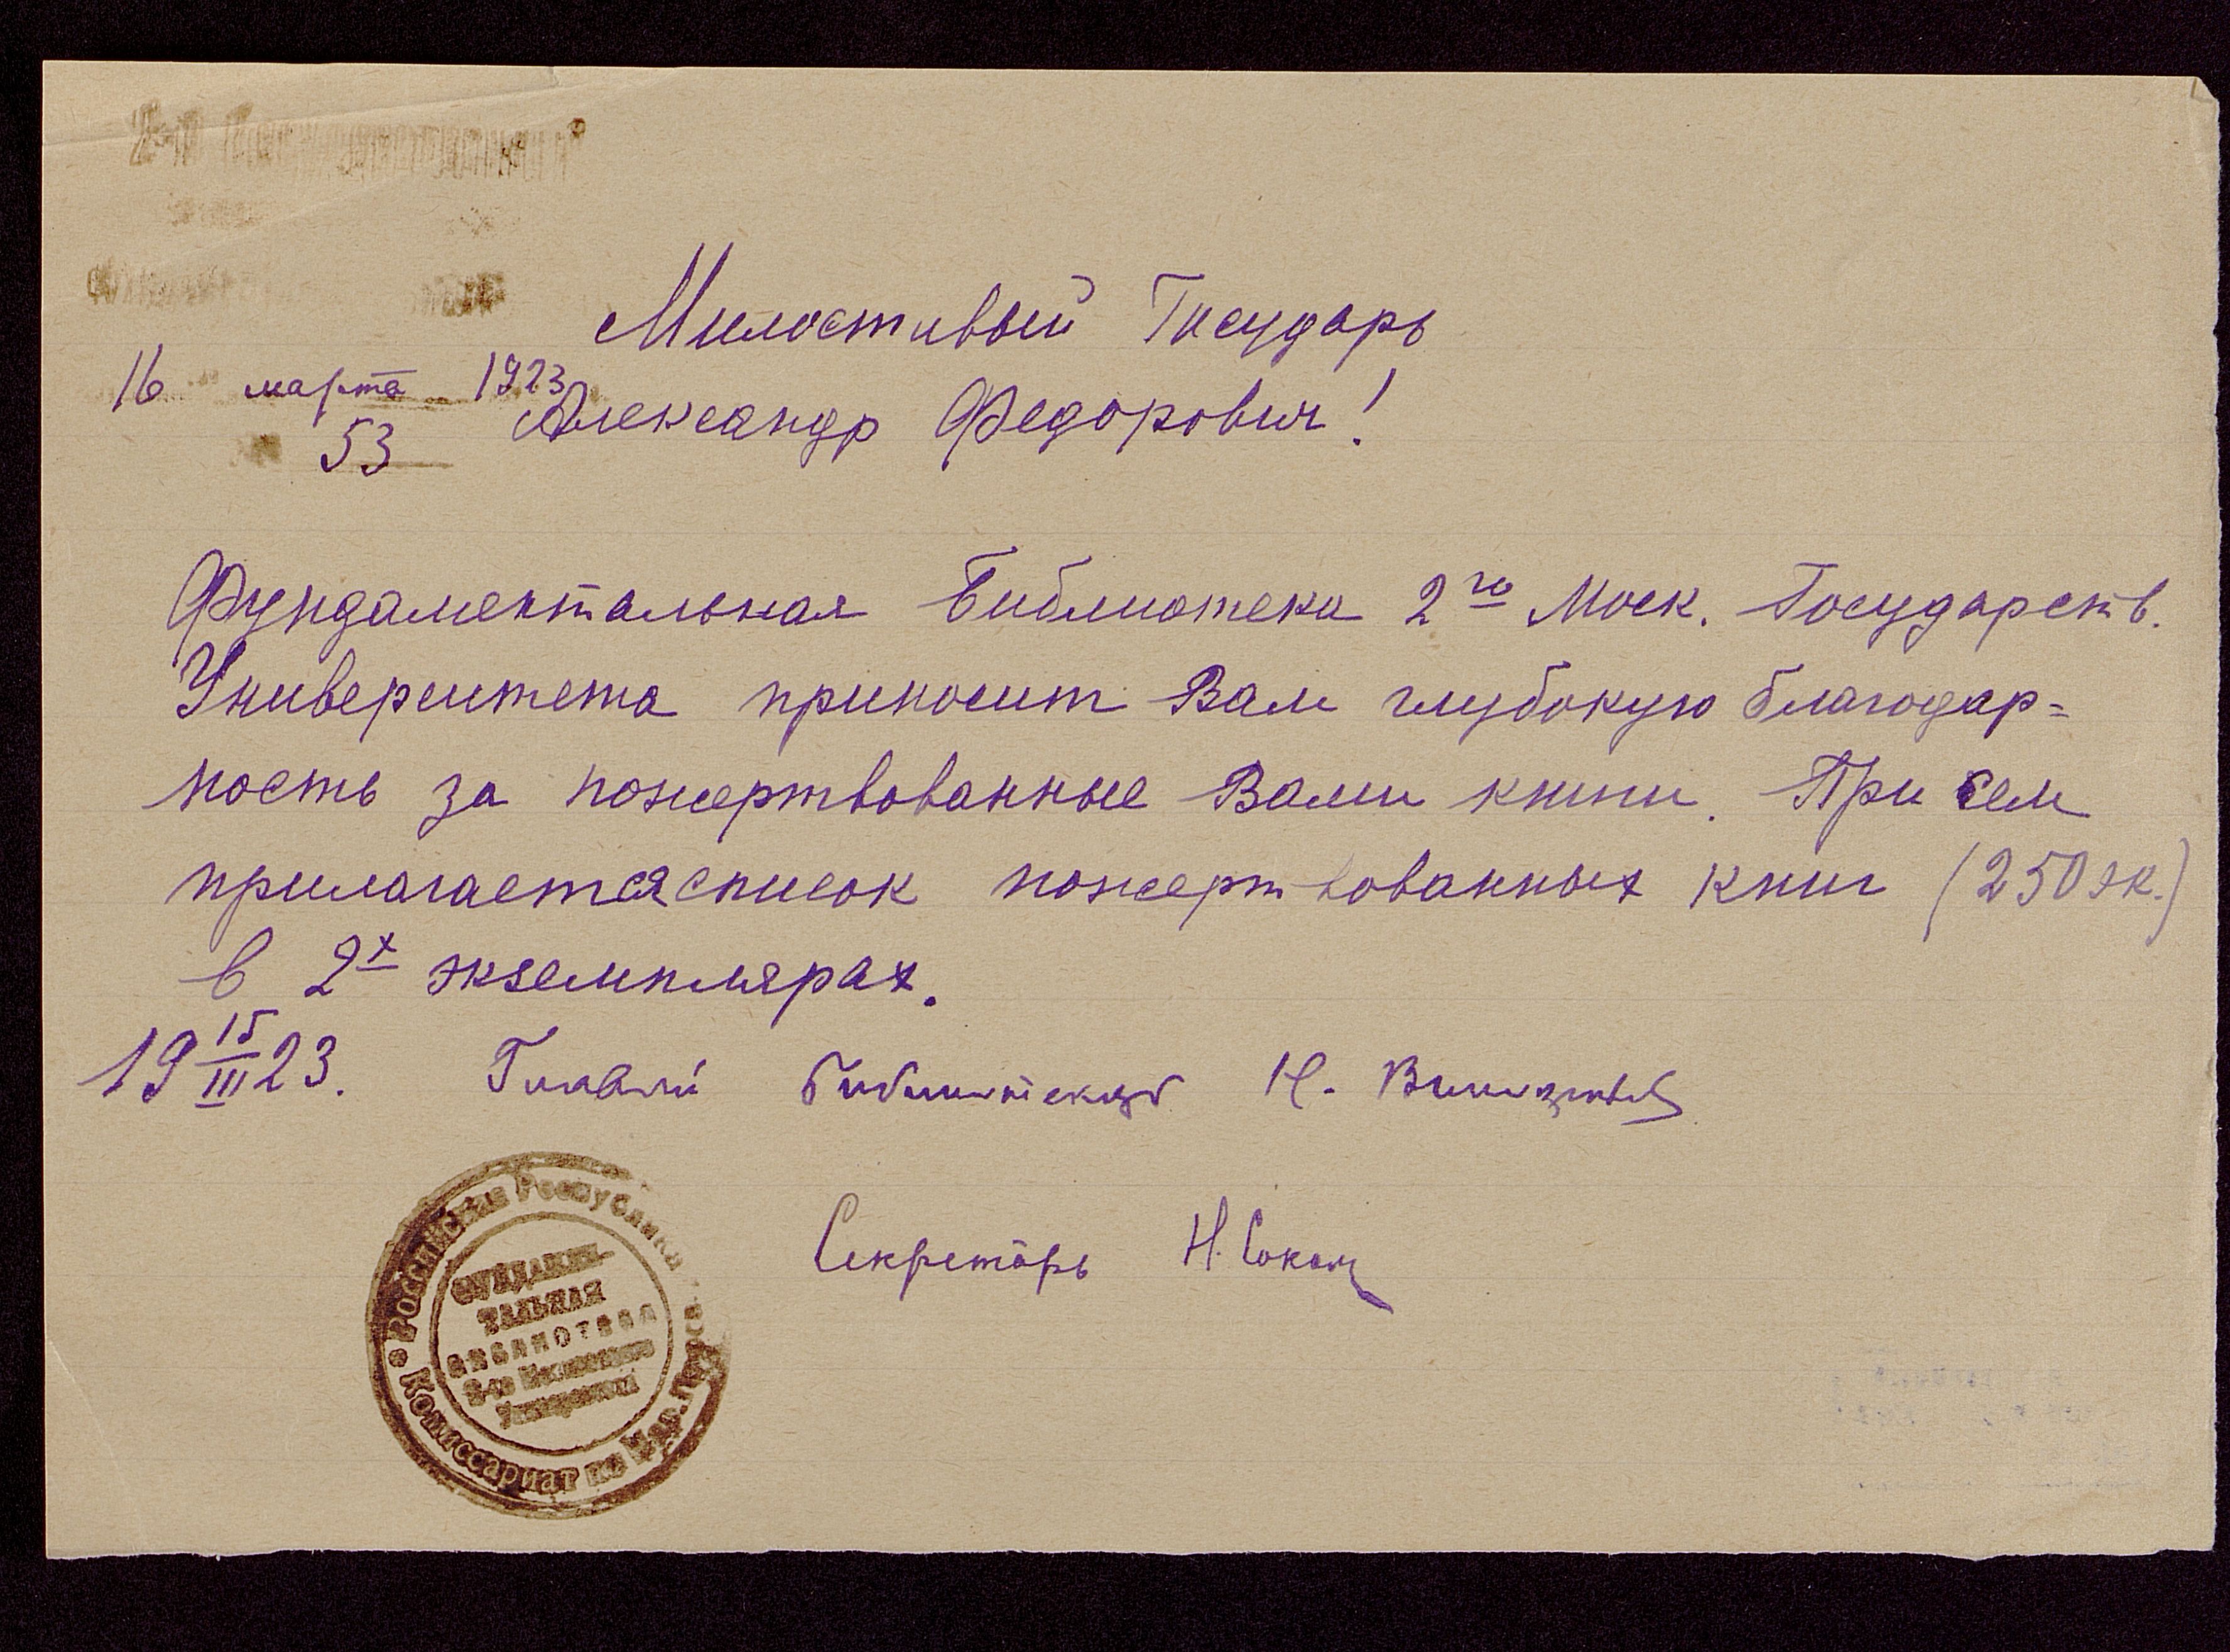 Милостивый Государь
16 марта 1923
Александр Федорович!
53
Фундаментальная Библиотека 2го Моск. Государств.
Университета приносит Вам глубокую благодар=
ность за пожертвованные Вами книги. При сем
прилагается список пожертвованных книг (250 эк.)
в 2х экземплярах.
19 15/III 23. Главный Библиотекарь Н.
Секретарь Н.
Российская Республика
Комиссариат по Нар. Просв.
ФУНДАМЕН-
ТАЛЬНАЯ
БИБЛИОТЕКА
2-го Московского
Университета